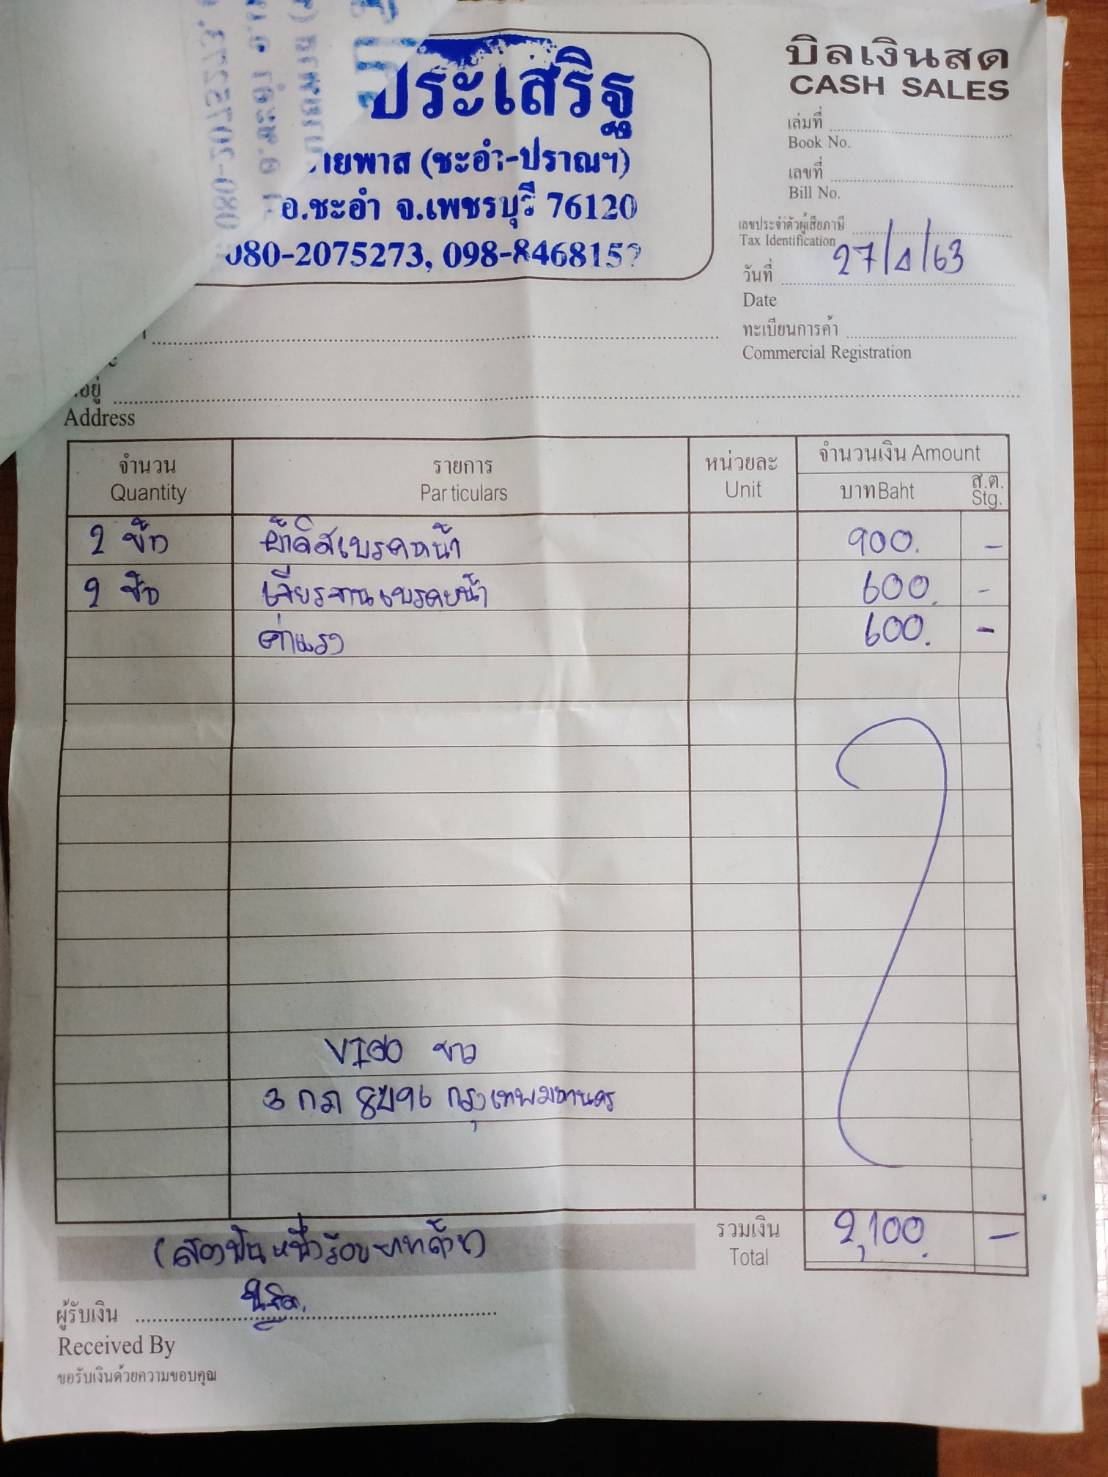 ประเสริฐ
ายพาส (ชะอำ-ปราณฯ)
อ.ชะอำ จ.เพชรบุรี 76120
080-2075273, 098-8468152
บิลเงินสด
CASH SALES
เล่มที่
Book No.
เลขที่
Bill No.
เลขประจำตัวผู้เสียภาษี
Tax Identification
27/1/63
วันที่
Date
ทะเบียนการค้า
Commercial Registration
Address
จำนวน รายการ หน่วยละ จำนวนเงิน Amount
Quantity Particulars Unit บาท Baht ส.ต. Stg.
ผ้าดิสเบรคหน้า 900. -
เจียรจานเบรคหน้า 600. -
ค่าแรง 600. -
VIGO ขาว
3 กภ 8496 กรุงเทพมหานคร
(สองพันหนึ่งร้อยบาทถ้วน) รวมเงิน Total 2,100. -
ผู้รับเงิน
Received By
ขอรับเงินด้วยความขอบคุณ